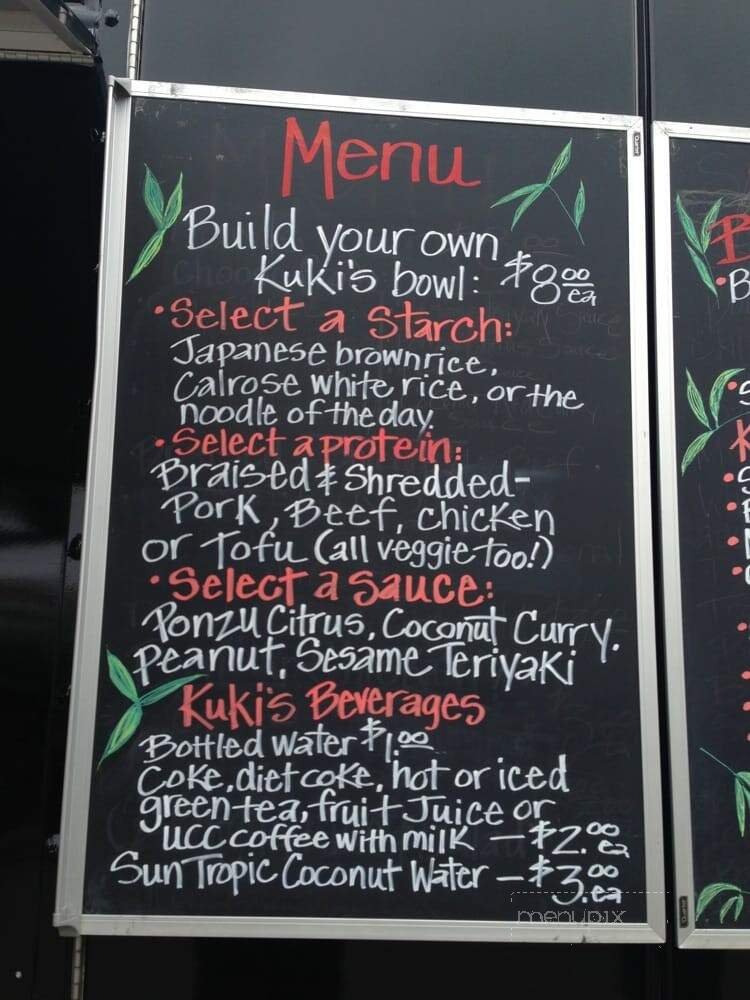 Menu
Build your own
Kuki's bowl: $8.00 ea
• Select a Starch:
Japanese brown rice,
Calrose white rice, or the
noodle of the day.
• Select a protein:
Braised & Shredded-
Pork, Beef, chicken
or Tofu (all veggie too!)
• Select a sauce:
Ponzu Citrus, Coconut Curry,
peanut, Sesame Teriyaki
Kuki's Beverages
Bottled water $1.00
Coke, diet coke, hot or iced
green tea, fruit Juice or
UCC coffee with milk - $2.00 ea
Sun Tropic Coconut Water - $3.00 ea
menupix